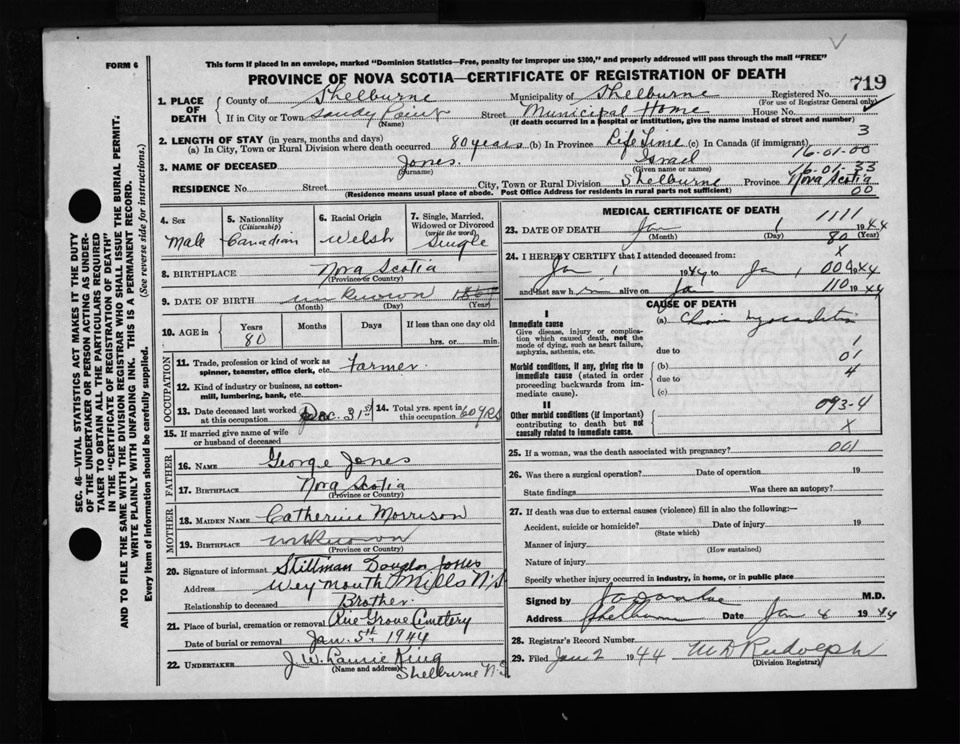 FORM 6
This form if placed in an envelope, marked "Dominion Statistics—Free, penalty for improper use $300," and properly addressed will pass through the mail "FREE"
PROVINCE OF NOVA SCOTIA—CERTIFICATE OF REGISTRATION OF DEATH
719
1. PLACE OF DEATH { County of Shelburne Municipality of Shelburne Registered No.
(For use of Registrar General only)
If in City or Town Sandy Point Street Municipal Home House No.
(Name) (If death occurred in a hospital or institution, give the name instead of street and number)
2. LENGTH OF STAY (in years, months and days) 3
(a) In City, Town or Rural Division where death occurred 80 years (b) In Province Life Time (c) In Canada (if immigrant)
16-01-00
3. NAME OF DECEASED Jones. Israel
(Surname) (Given name or names)
16-01-33
RESIDENCE No. Street City, Town or Rural Division Shelburne Province Nova Scotia
(Residence means usual place of abode. Post Office Address for residents in rural parts not sufficient) 00
4. Sex Male
5. Nationality (Citizenship) Canadian
6. Racial Origin Welsh
7. Single, Married, Widowed or Divorced (write the word) Single
8. BIRTHPLACE Nova Scotia
(Province or Country)
9. DATE OF BIRTH unknown
(Month) (Day) (Year)
10. AGE in Years 80 Months Days If less than one day old
hrs. or min.
OCCUPATION
11. Trade, profession or kind of work as spinner, teamster, office clerk, etc. Farmer
12. Kind of industry or business, as cotton-mill, lumbering, bank, etc.
13. Date deceased last worked at this occupation Dec. 31st
14. Total yrs. spent in this occupation 60 yrs
15. If married give name of wife or husband of deceased
FATHER
16. NAME George Jones
17. BIRTHPLACE Nova Scotia
(Province or Country)
MOTHER
18. MAIDEN NAME Catherine Morrison
19. BIRTHPLACE unknown
(Province or Country)
20. Signature of informant Stillman Douglas Jones
Address Weymouth Mills N.S
Relationship to deceased Brother.
21. Place of burial, cremation or removal Grove Cemetery
Date of burial or removal Jan. 5th 1944
22. UNDERTAKER J. W. Laurie King
(Name and address) Shelburne N.S
MEDICAL CERTIFICATE OF DEATH
1111
23. DATE OF DEATH Jan 1 1944
(Month) (Day) (Year)
80
X
24. I HEREBY CERTIFY that I attended deceased from:
Jan 1 1944 to Jan 1 1944
00
and last saw h alive on Jan 1944
110
CAUSE OF DEATH
I
Immediate cause (a)
Give disease, injury or complication which caused death, not the mode of dying, such as heart failure, asphyxia, asthenia, etc.
due to
1
01
4
Morbid conditions, if any, giving rise to immediate cause (stated in order proceeding backwards from immediate cause).
(b)
due to
(c)
II
093-4
Other morbid conditions (if important) contributing to death but not causally related to immediate cause.
X
25. If a woman, was the death associated with pregnancy? 001
26. Was there a surgical operation? Date of operation 19
State findings Was there an autopsy?
27. If death was due to external causes (violence) fill in also the following:—
Accident, suicide or homicide? Date of injury 19
(State which)
Manner of injury
(How sustained)
Nature of injury
Specify whether injury occurred in industry, in home, or in public place
Signed by M.D.
Address Shelburne Date Jan 4 1944
28. Registrar's Record Number
29. Filed Jan 2 1944 M D Rudolph
(Division Registrar)
SEC. 46—VITAL STATISTICS ACT MAKES IT THE DUTY
OF THE UNDERTAKER OR PERSON ACTING AS UNDER-
TAKER TO OBTAIN ALL THE PARTICULARS REQUIRED
IN THE "CERTIFICATE OF REGISTRATION OF DEATH"
AND TO FILE THE SAME WITH THE DIVISION REGISTRAR WHO SHALL ISSUE THE BURIAL PERMIT.
WRITE PLAINLY WITH UNFADING INK. THIS IS A PERMANENT RECORD.
Every item of information should be carefully supplied. (See reverse side for instructions.)